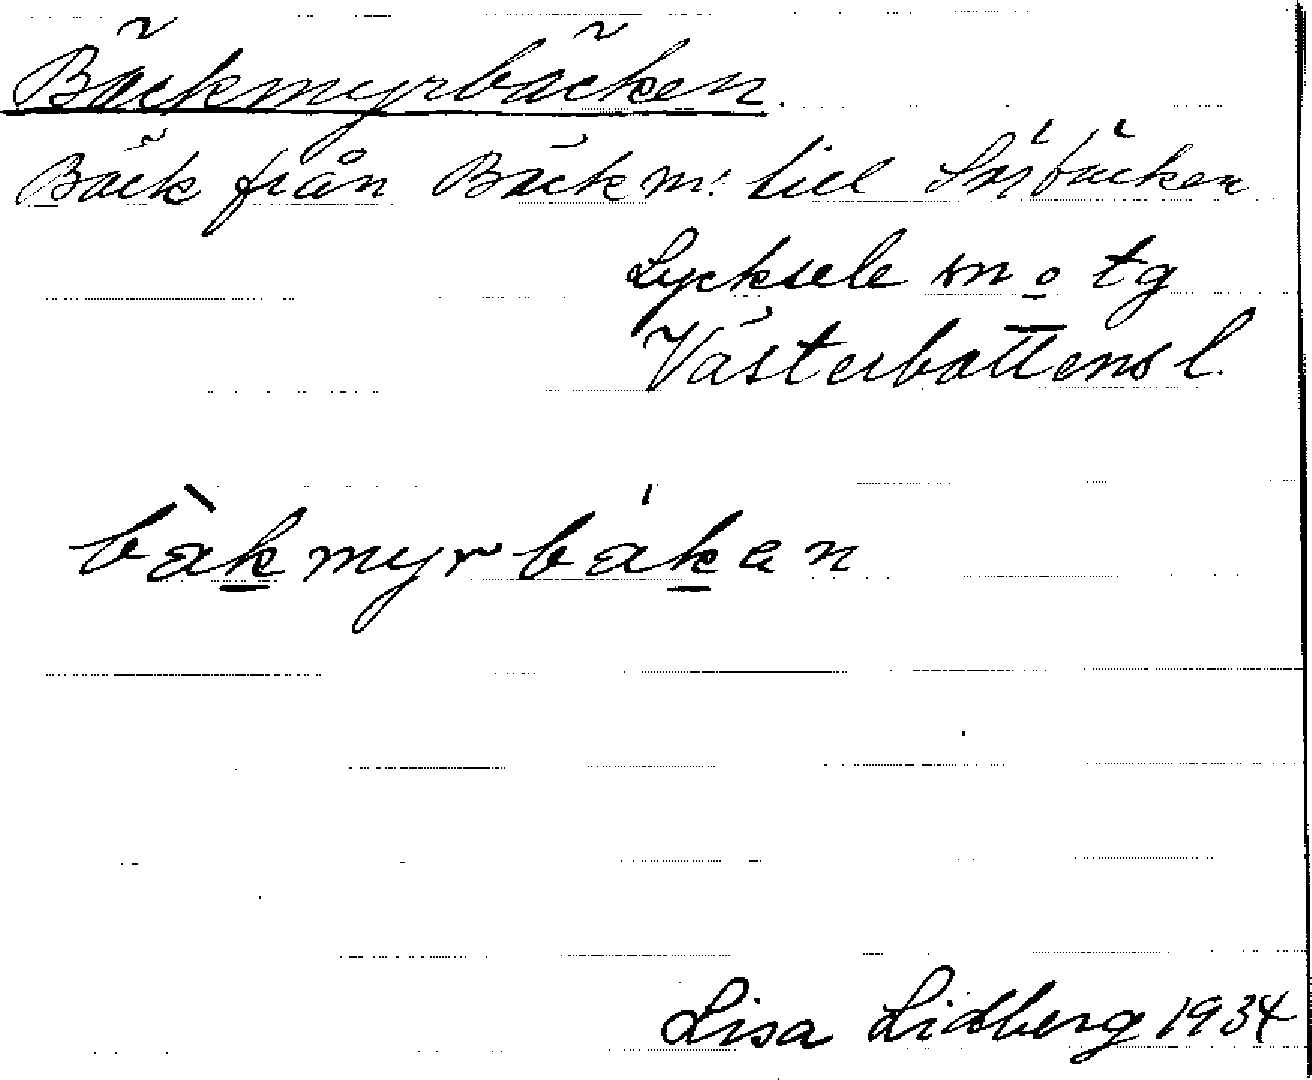 Bäckmyrbäcken.
Bäck från Bäckm: till
Lycksele sn o tg
Västerbottens l.
bàkmyrbákan
Lisa Lidberg 1934